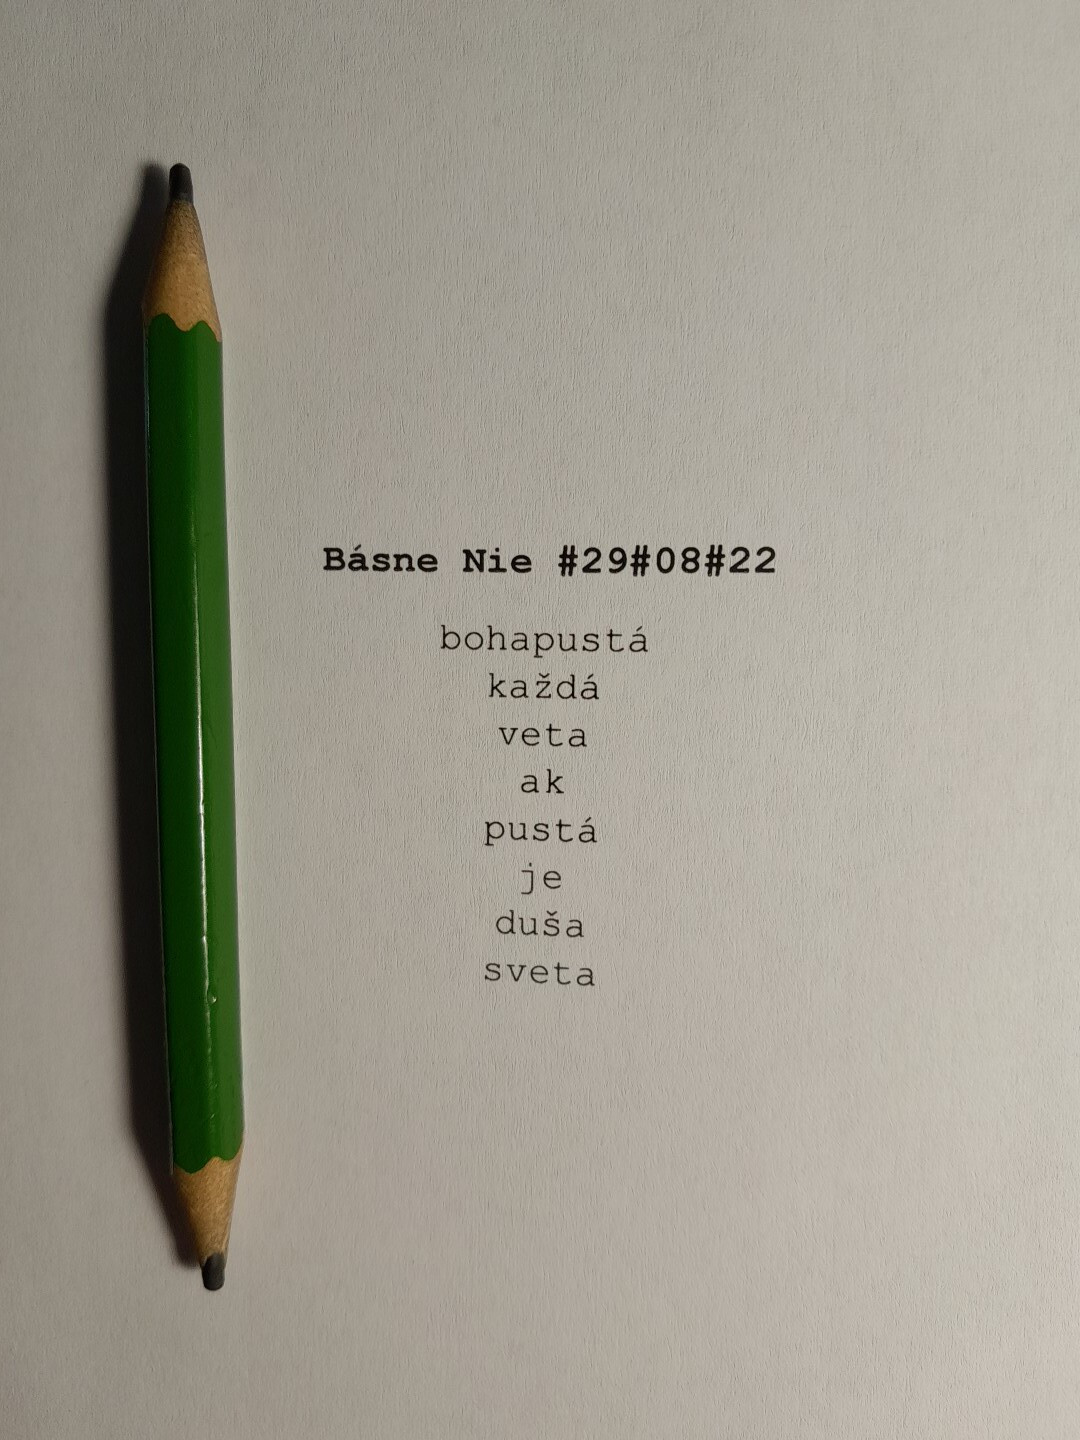 Básne Nie #29#08#22
bohapustá
každá
veta
ak
pustá
je
duša
sveta